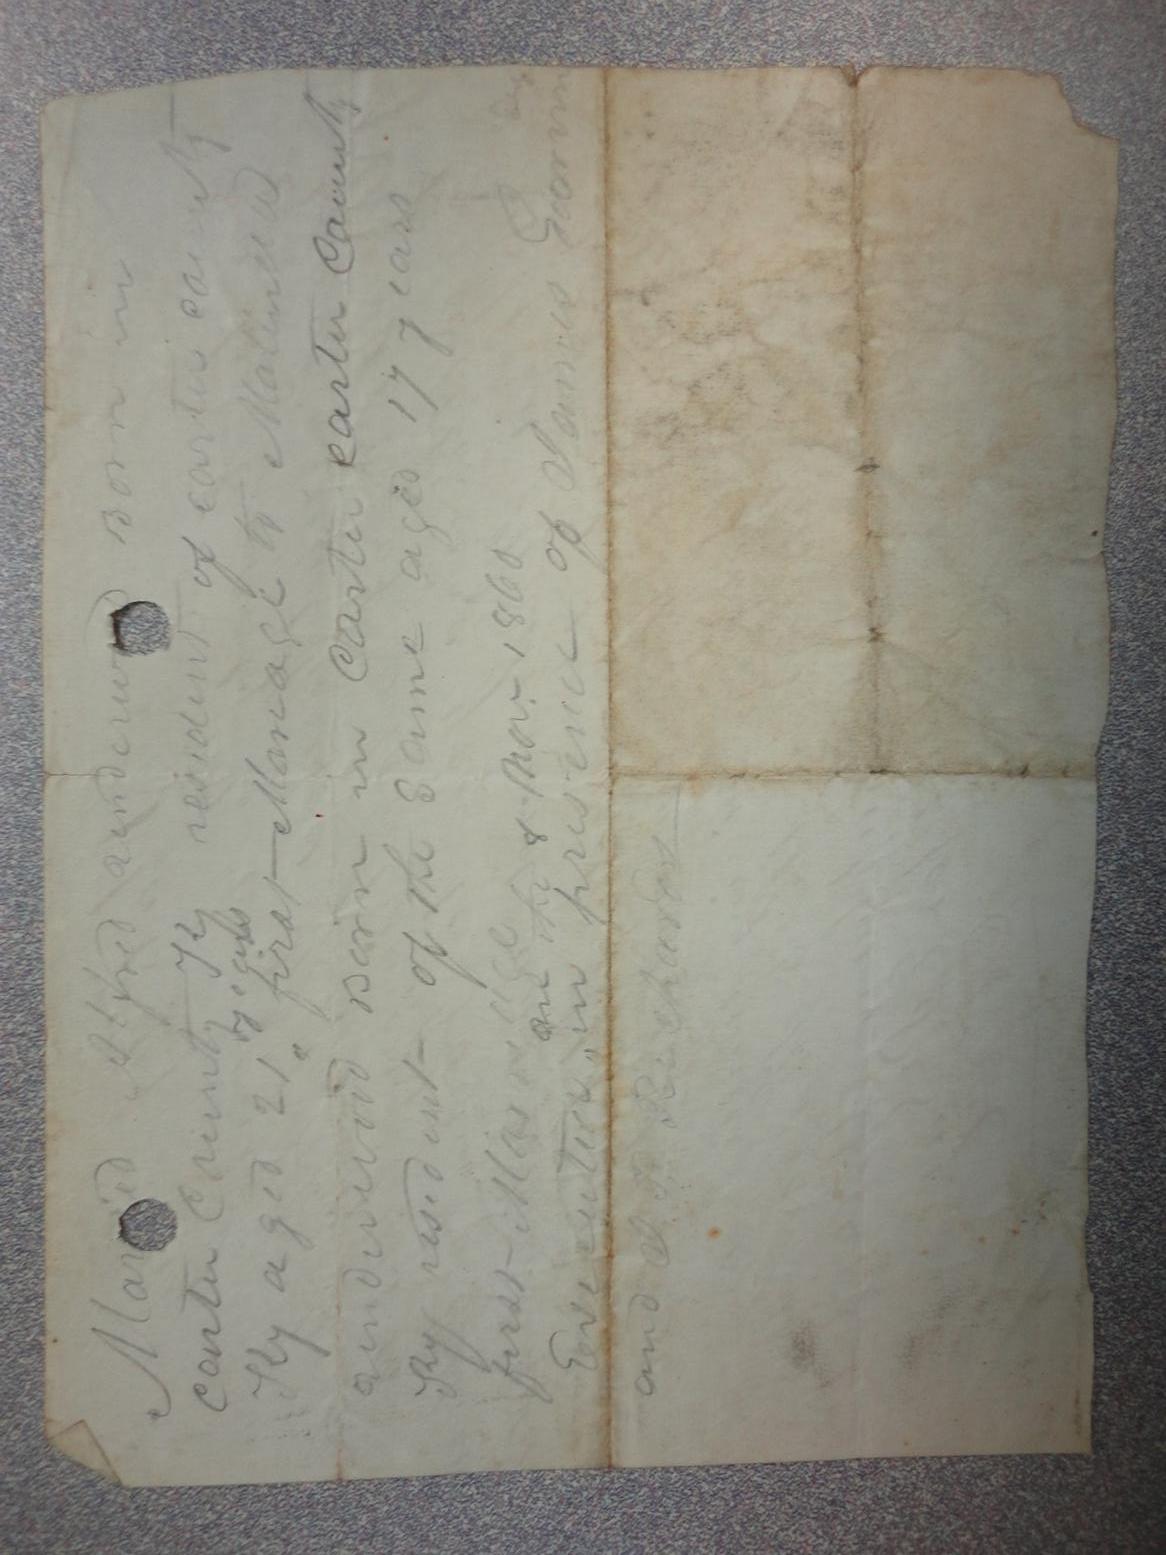 Maried Alfred underwood Born in
carter County Ky resident of carter county
Ky aged 21 years first Marriage to Malinda
underwood Born in Carter carter County
Ky resident of the Same aged 17 years
first Marriage
on the 8 Nov. 1860
in presence of James
and Richards